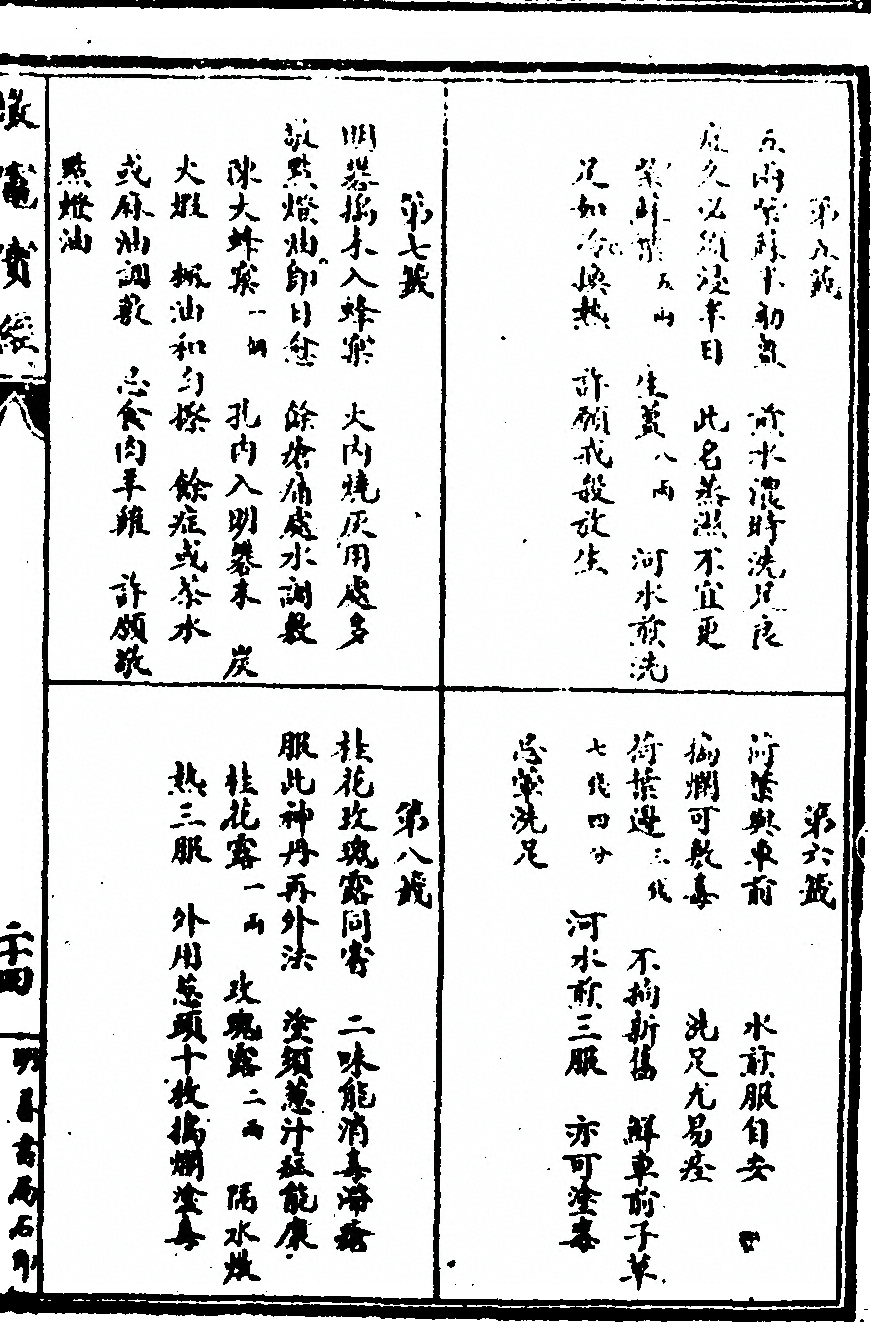 第五籤
五兩紫蘇半觔薑 煎水濃時洗足良
症久必須浸半日 此名蒸濕不宜更
紫蘇葉五兩 生薑八兩 河水煎洗
足如冷換熱 許願戒殺放生
第六籤
荷葉與車前 水煎服自安
搗爛可敷毒 洗足尤易痊
荷葉邊三錢 不拘新舊 鮮車前子草
七錢四分 河水煎三服 亦可塗毒
忌葷洗足
第七籤
明礬搗末入蜂窠 火內燒灰用處多
敬點燈油即日愈 餘瘡痛處水調敷
陳大蜂窠一個 孔內入明礬末 炭
火煅 桐油和勻搽 餘症或茶水
或麻油調敷 忌食肉羊雞 許願敬
點燈油
第八籤
桂花玫瑰露同容 二味能消毒滯瘡
服此神丹再外法 塗須蔥汁症能康
桂花露一兩 玫瑰露二兩 隔水燉
熱三服 外用蔥頭十枚搗爛塗毒
敬竈寶經
二十四
明善書局石印